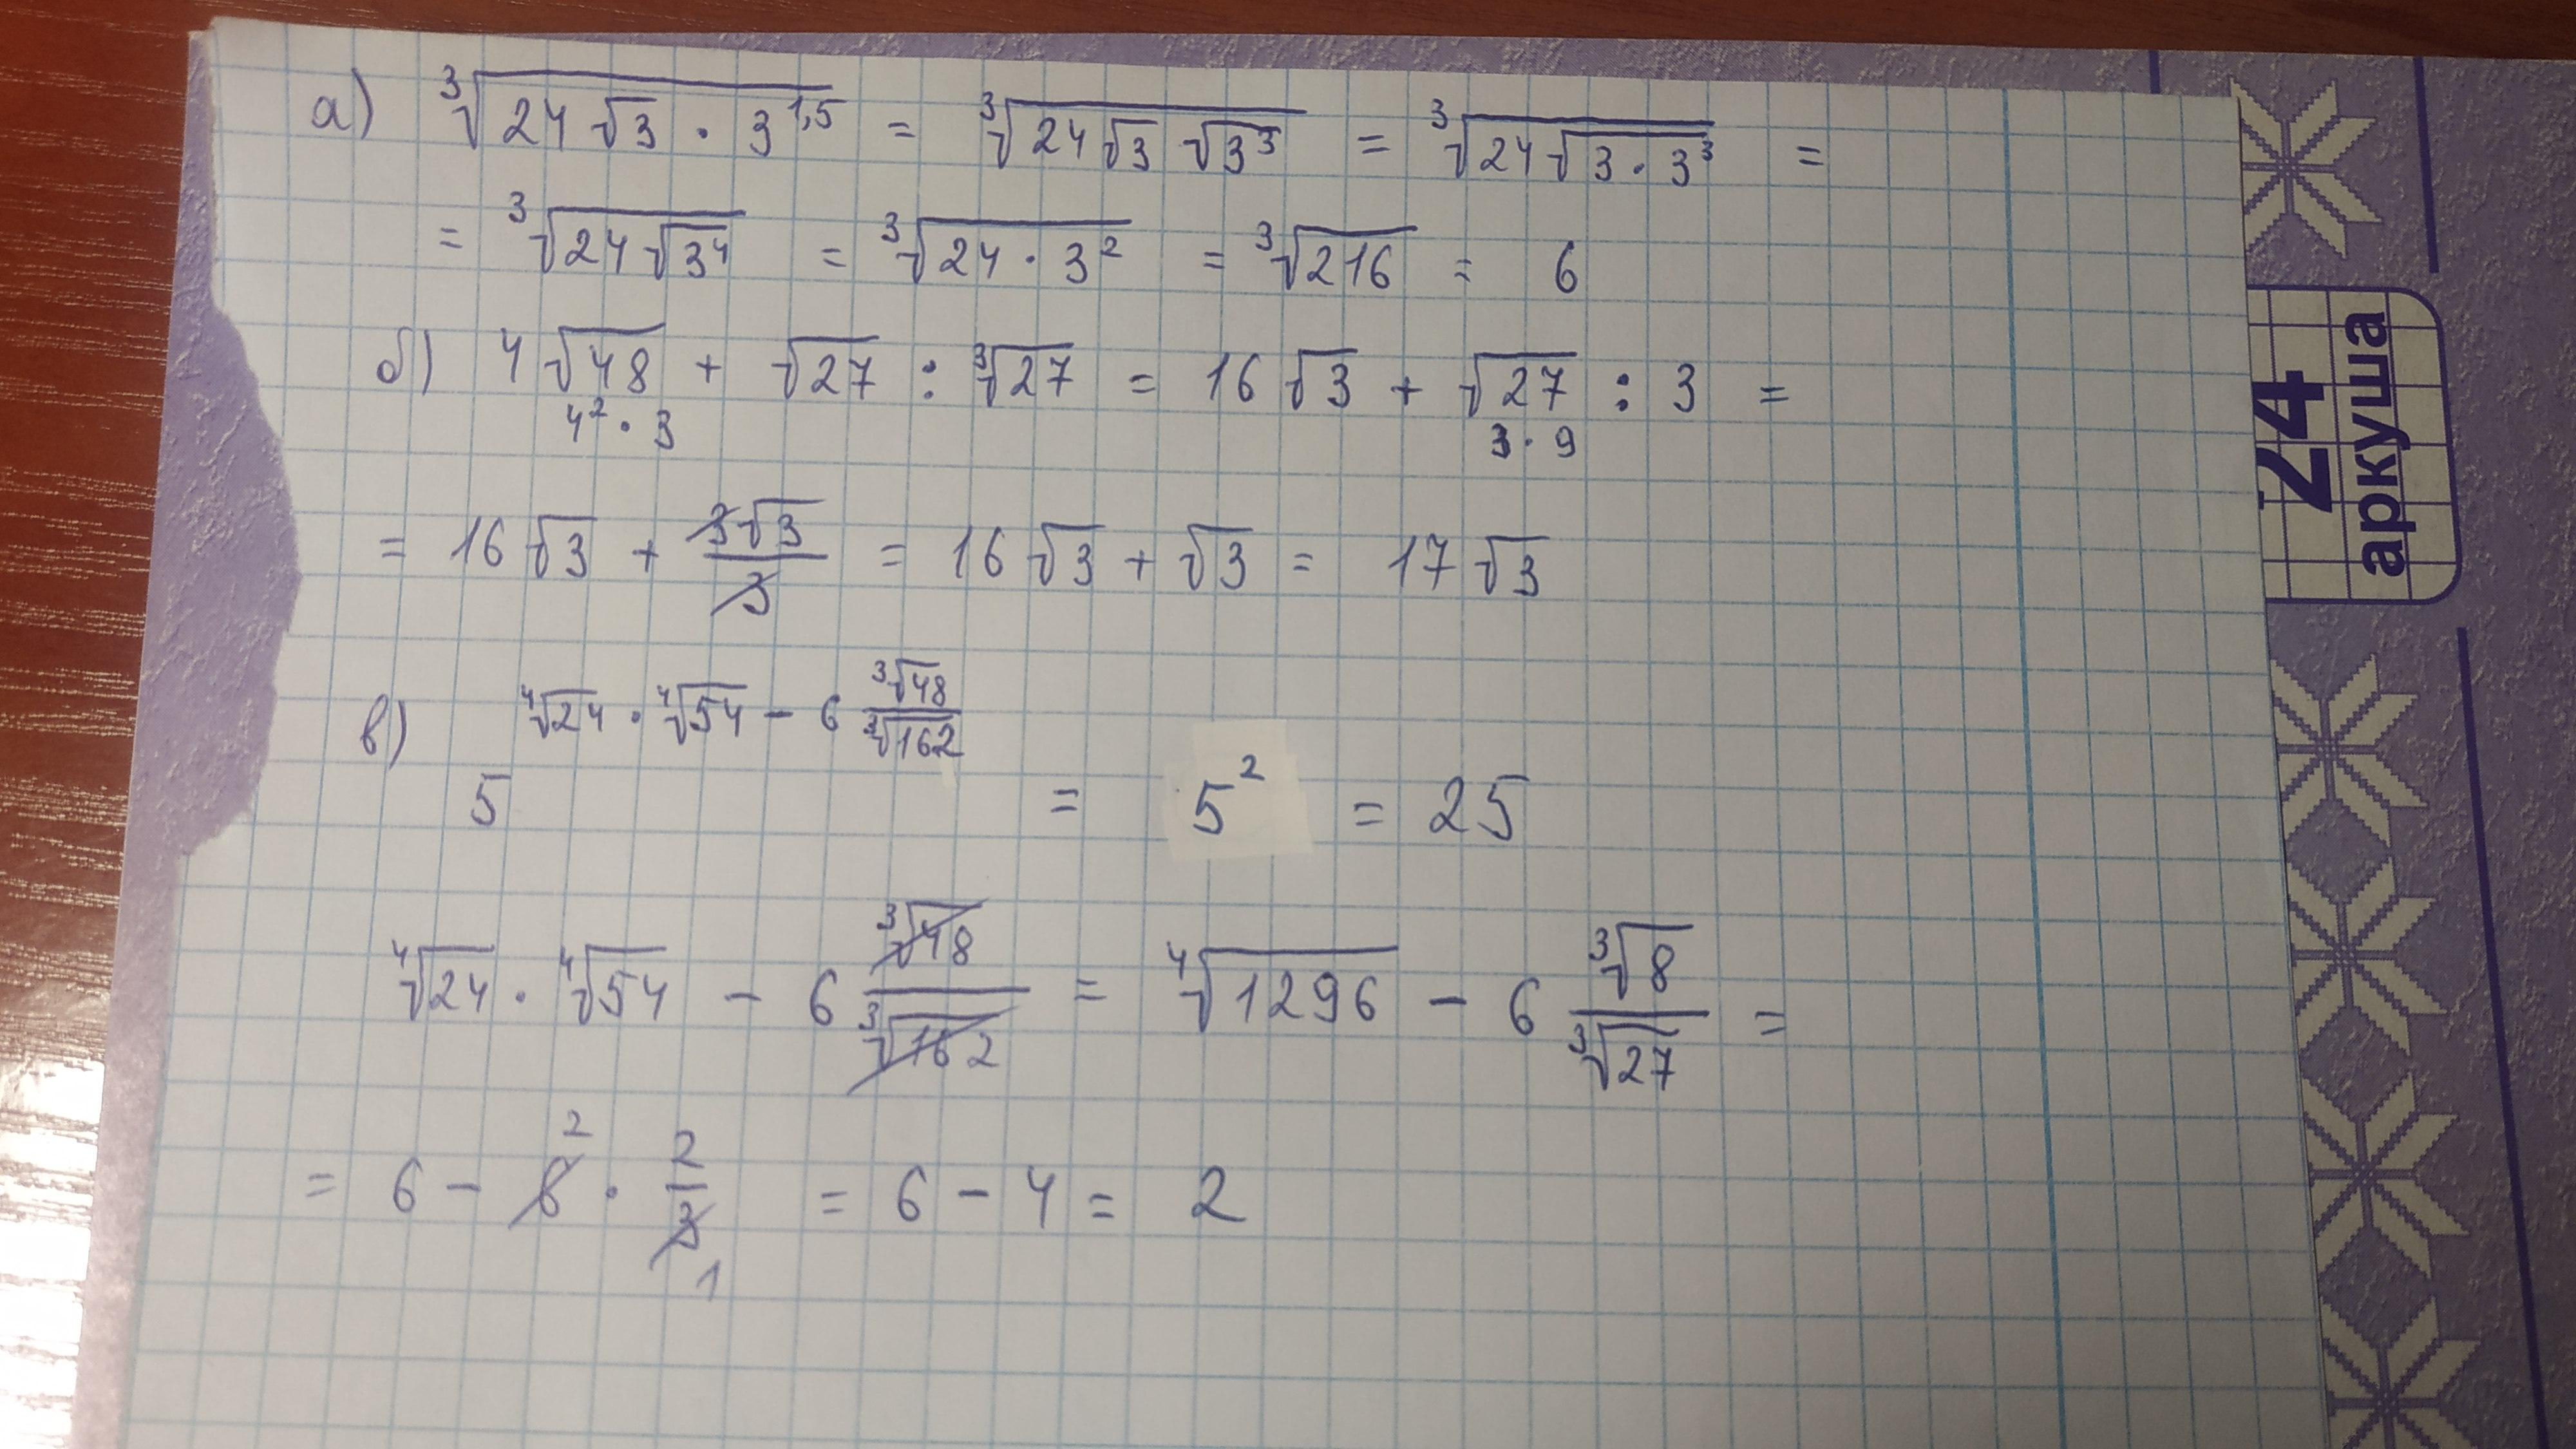 а) ∛(24√3 · 3^1,5) = ∛(24√3 √3³) = ∛(24√(3·3³)) =
= ∛(24√3⁴) = ∛(24·3²) = ∛216 = 6
б) 4√48 + √27 : ∛27 = 16√3 + √27 : 3 =
4²·3 3·9
= 16√3 + 3√3/3 = 16√3 + √3 = 17√3
в) 5^(∜24 · ∜54 − 6 ∛48/∛162) = 5² = 25
∜24 · ∜54 − 6 ∛48/∛162 = ∜1296 − 6 ∛8/∛27 =
2
= 6 − 6 · 2/3 = 6 − 4 = 2
1
24
аркуша